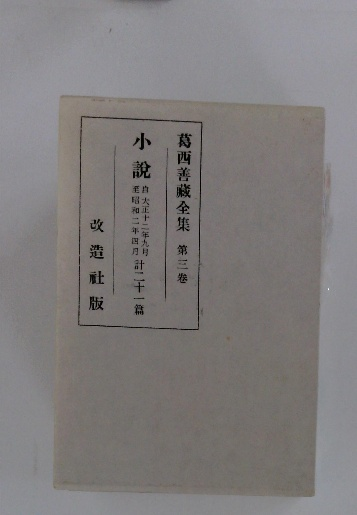 葛西善藏全集 第三卷
小說 自大正十二年九月 計二十一篇
至昭和二年四月
改造社版